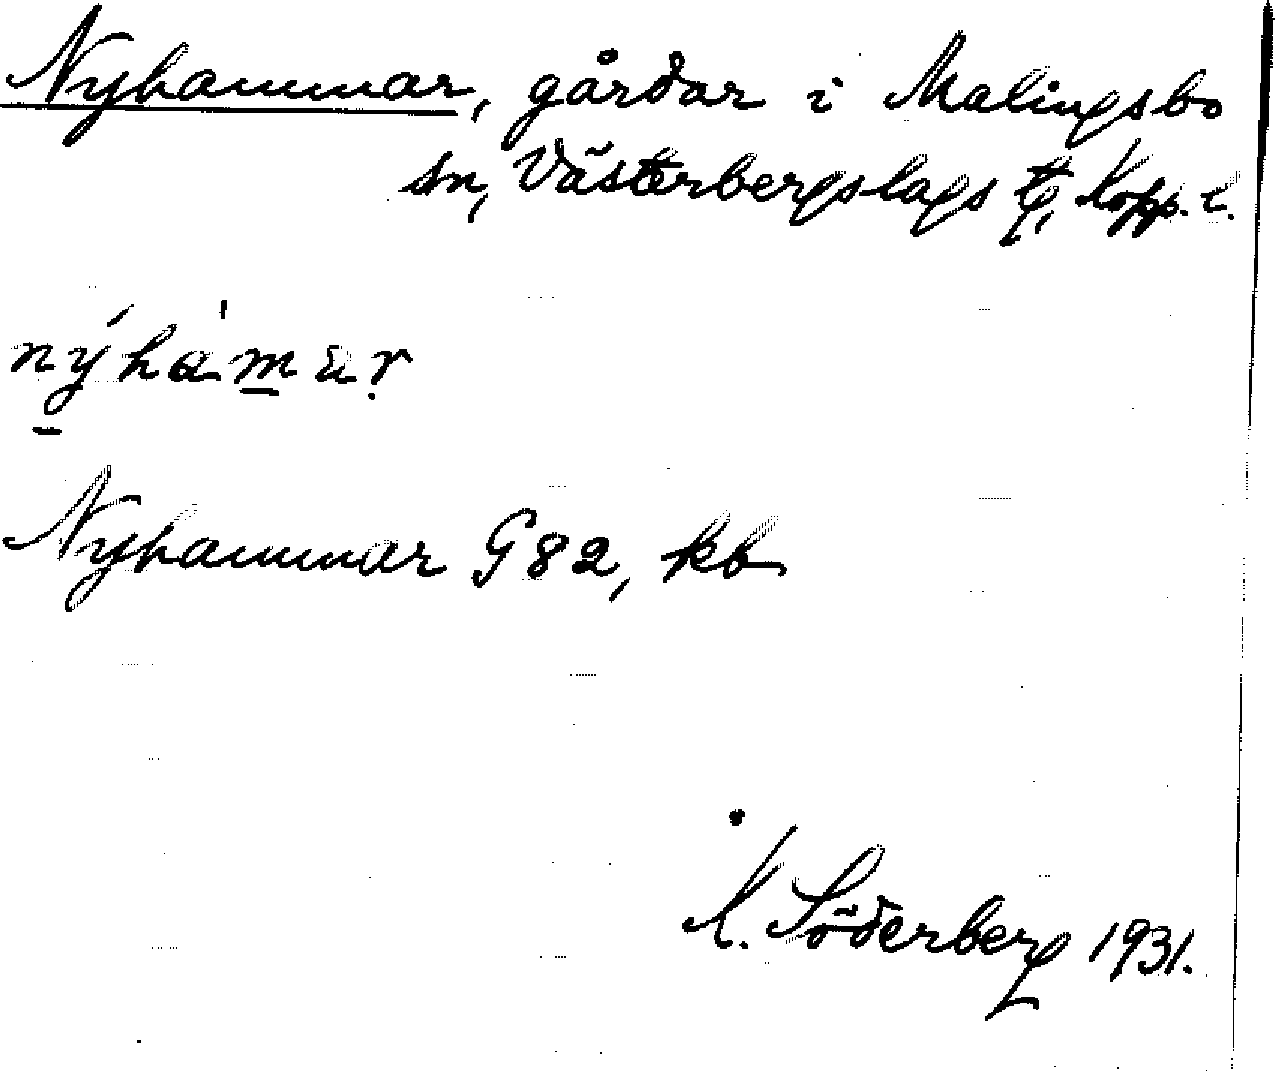 Nyhammar, gårdar i Malingsbo
sn, Västerbergslags tg, Kopp. l.
nýhȧmar
Nyhammar G82, kb
Å. Söderberg 1931.